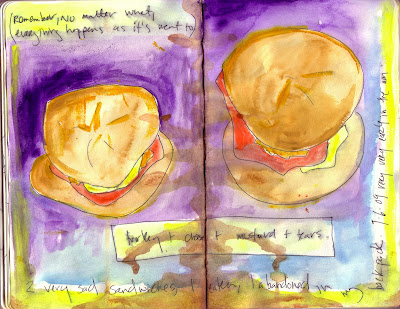 (Remember, no matter what,
(everything happens as it's meant to)
turkey + + mustard + tears.
2 very sad sandwiches, 1 eaten, 1 abandoned in my
backpack. 7.6.09 very very early in the am